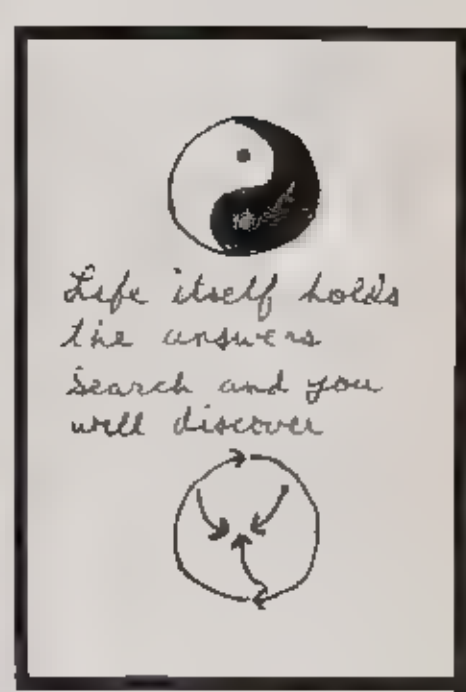 Life itself holds
the answers
Search and you
will discover